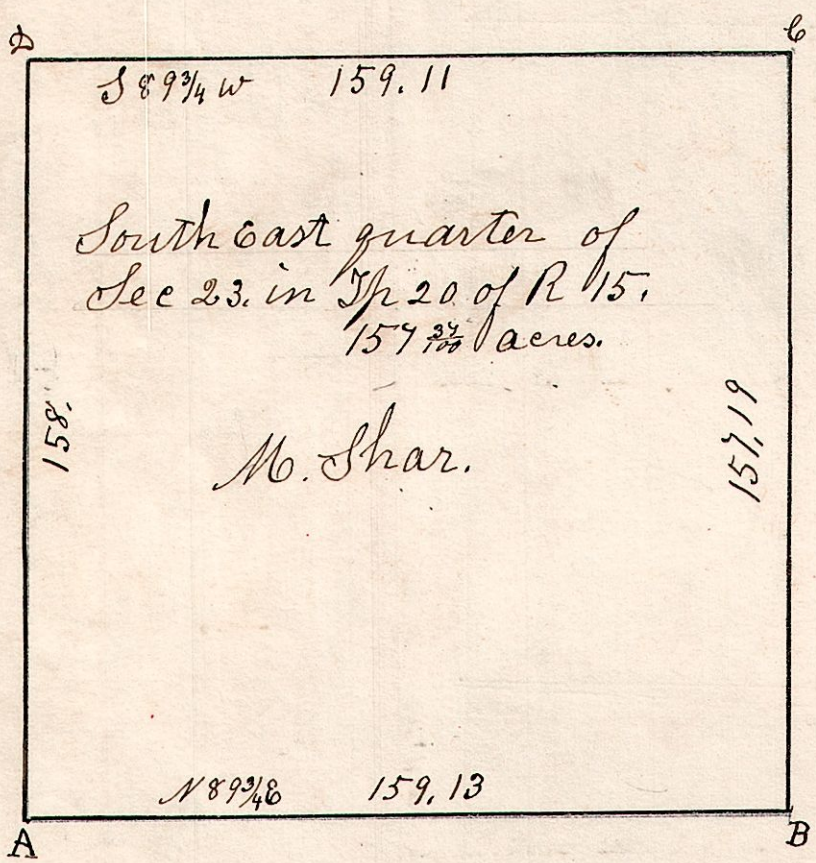 D C
S 89¾ W 159.11
South East quarter of
Sec 23. in Tp 20 of R 15.
157 37/100 acres.
158.
157,19
M. Shar.
N 89¾ E 159,13
A B